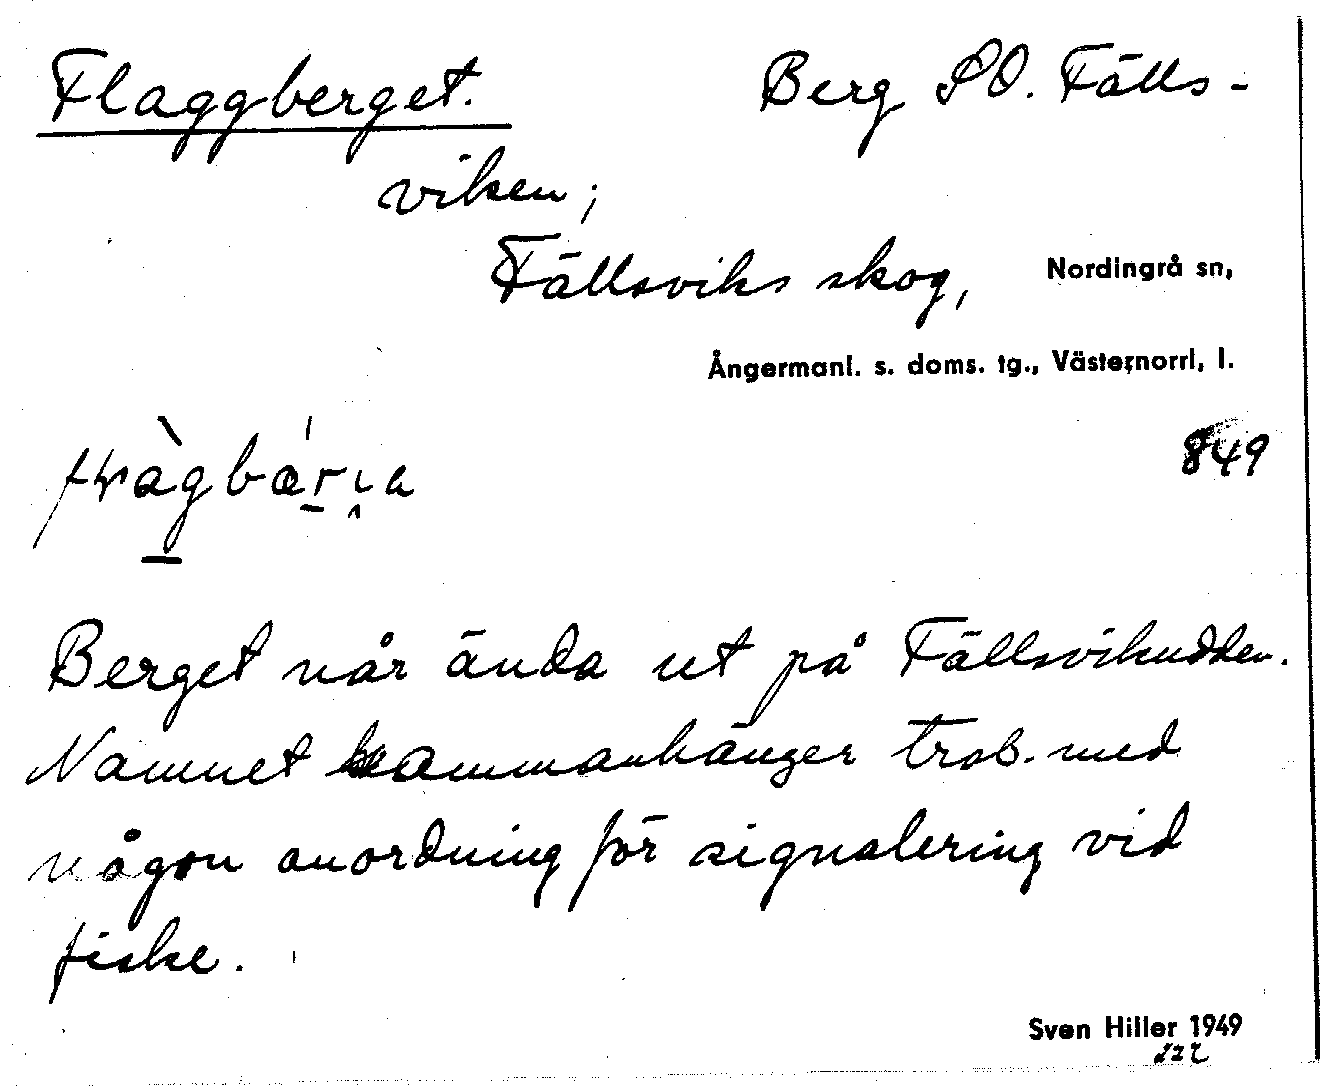 Flaggberget. Berg SO. Fälls-
viken;
Fällsviks skog, Nordingrå sn,
Ångermanl. s. doms. tg., Västernorrl, l.
849
Berget når ända ut på Fällsvikudden.
Namnet sammanhänger trol. med
någon anordning för signalering vid
fiske.
Sven Hiller 1949